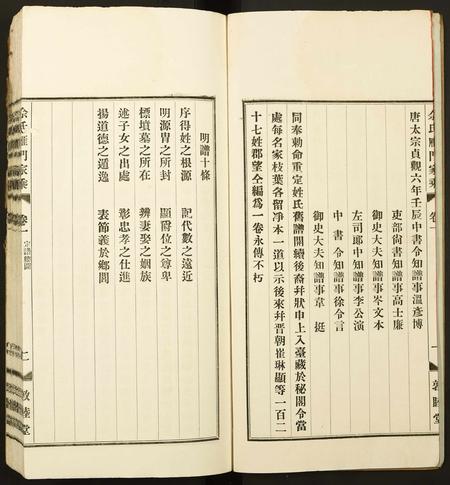 余氏雁門家乘 卷一
一 敦睦堂
唐太宗貞觀六年壬辰中書令知譜事溫彥博
吏部尙書知譜事高士廉
御史大夫知譜事岑文本
左司郎中知譜事李公演
中書令知譜事徐令言
御史大夫知譜事韋挺
同奉勅命重定姓氏舊譜開續後裔幷狀申上入臺藏於秘閣令當
處每名家枝葉各留淨本一道以示後來幷晋朝崔琳顯等一百二
十七姓郡望仝編爲一卷永傳不朽
明譜十條
序得姓之根源 記代數之遠近
明源冑之所封 顯爵位之尊卑
標墳墓之所在 辨妻娶之姻族
述子女之出處 彰忠孝之仕進
揚道德之遁逸 表節義於鄉閭
余氏雁門家乘 卷一
二 敦睦堂